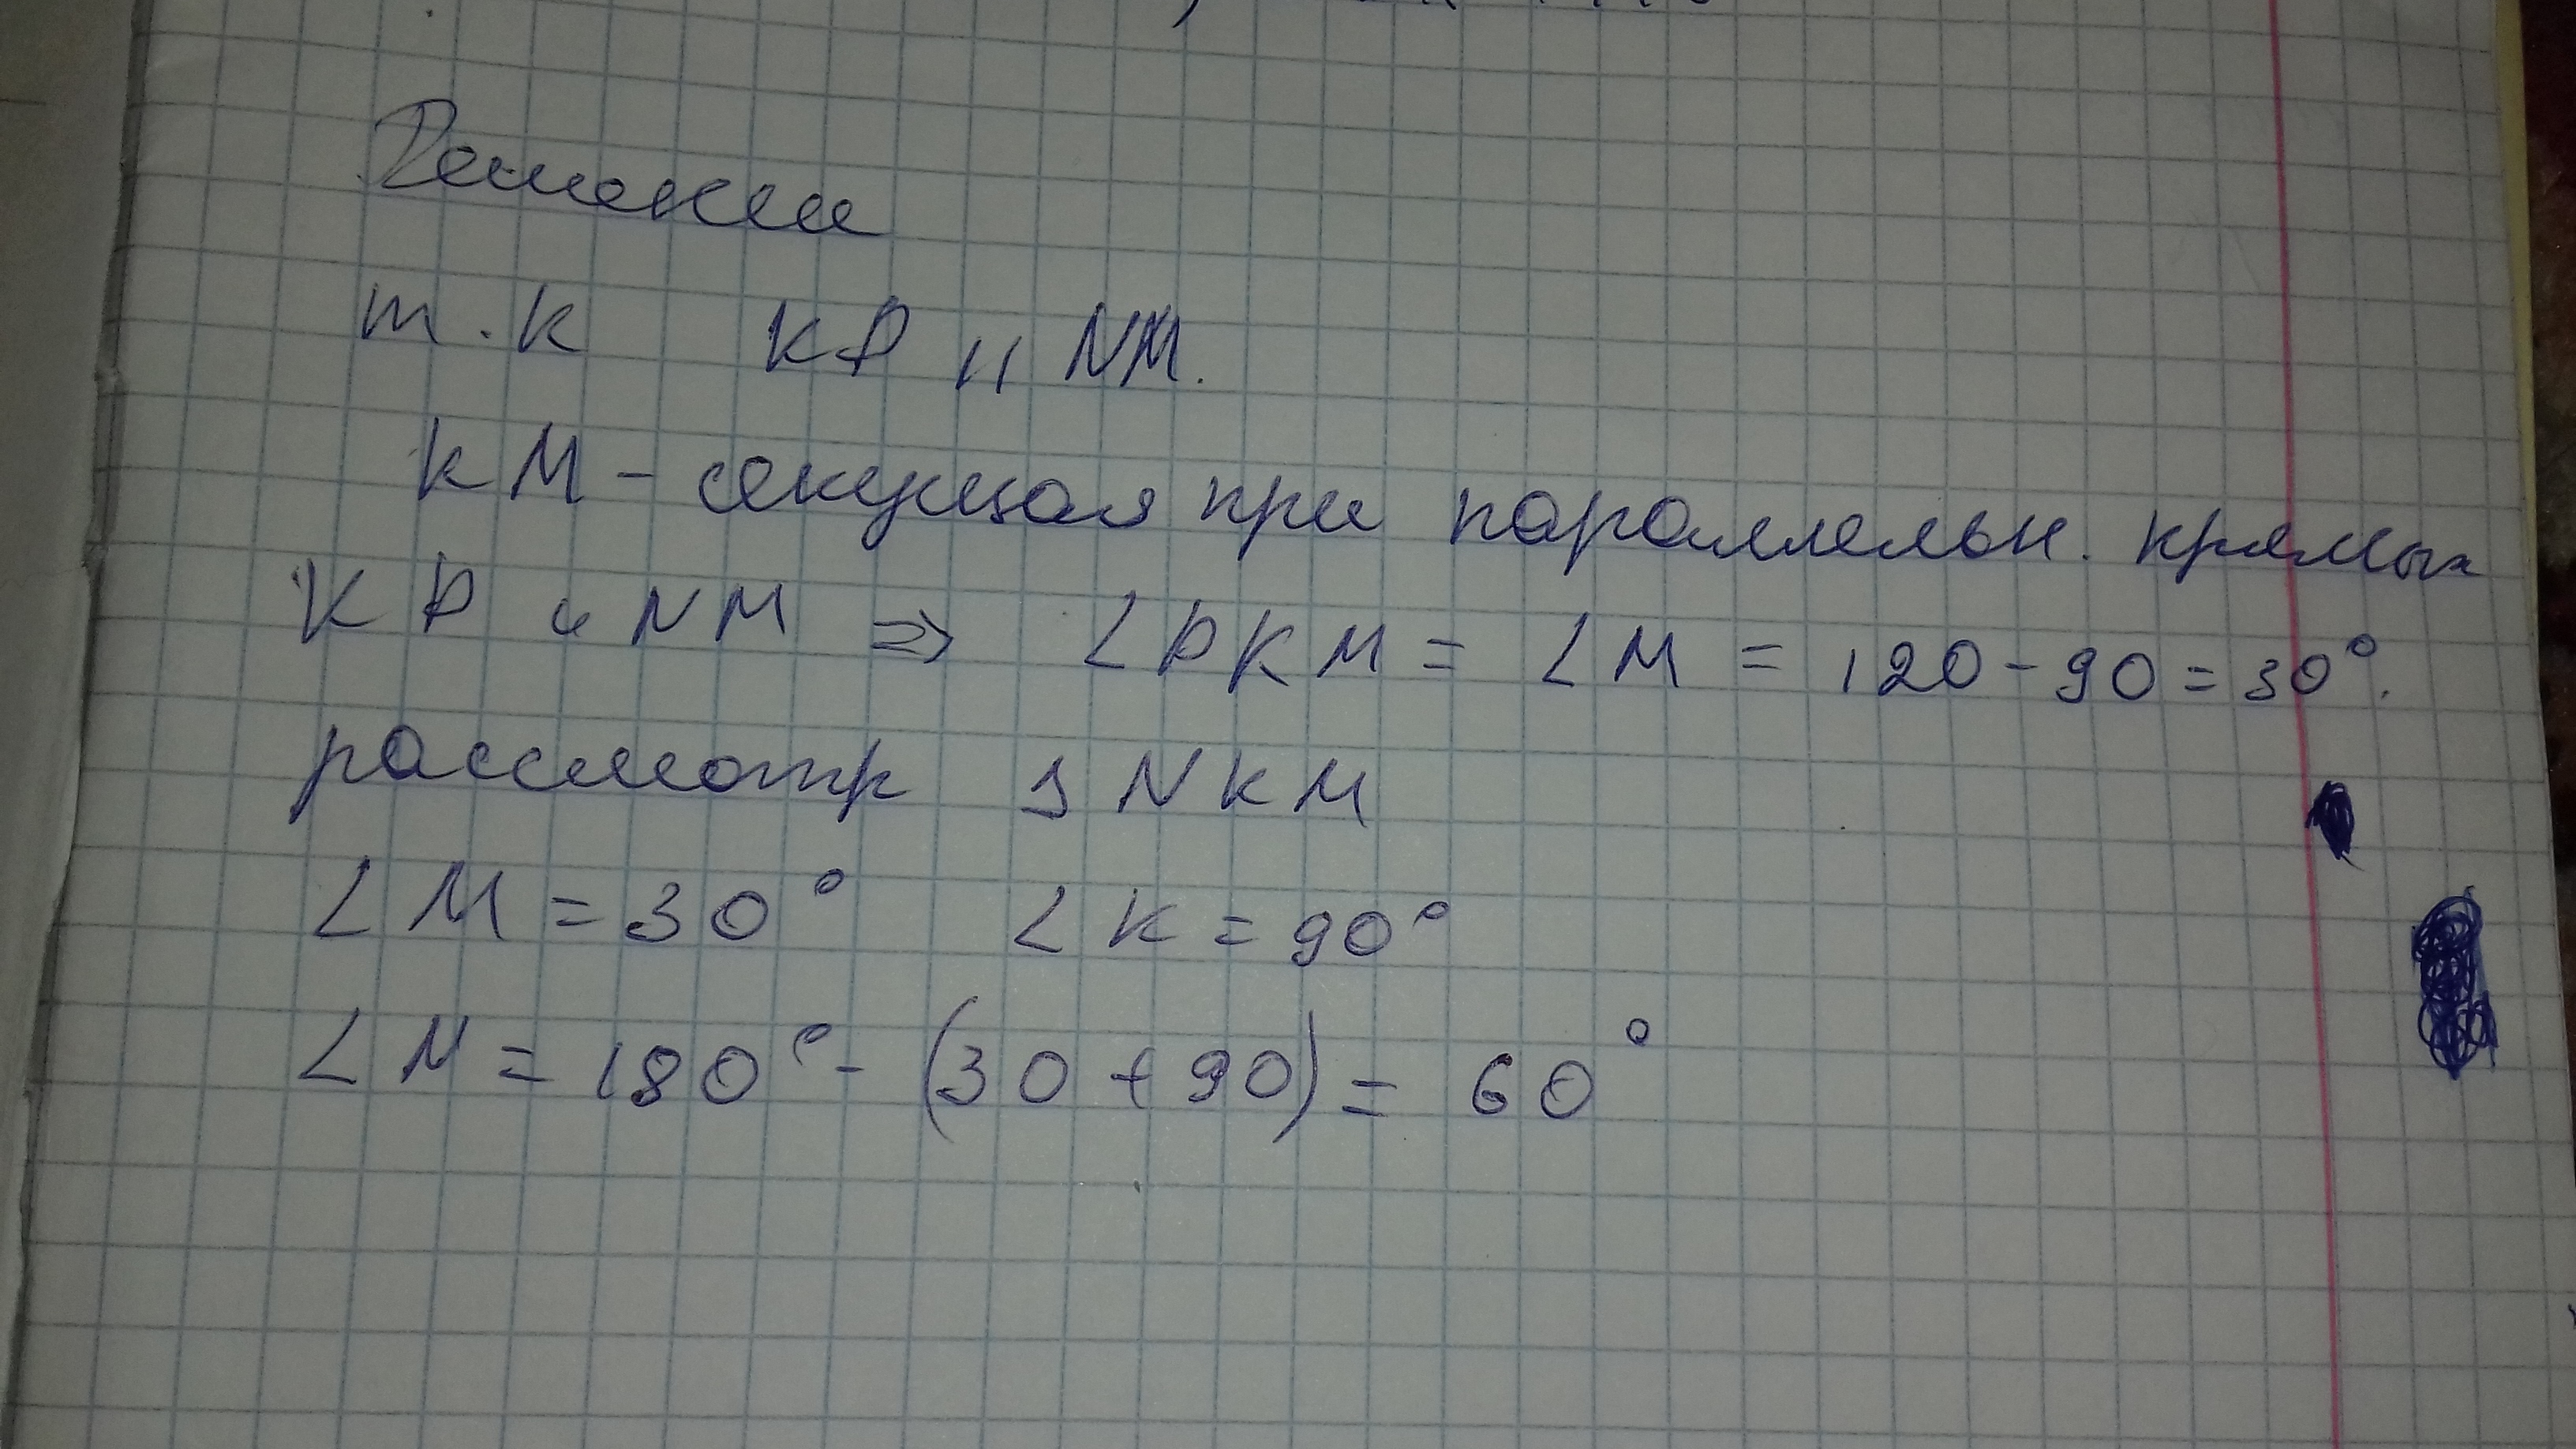 Решении
т.к KP || NM.
KM - секущая при параллельн. прямых
KP и NM => ∠PKM = ∠M = 120-90=30°.
рассмотр △ NKM
∠M = 30° ∠K = 90°
∠N = 180° - (30 + 90) = 60°